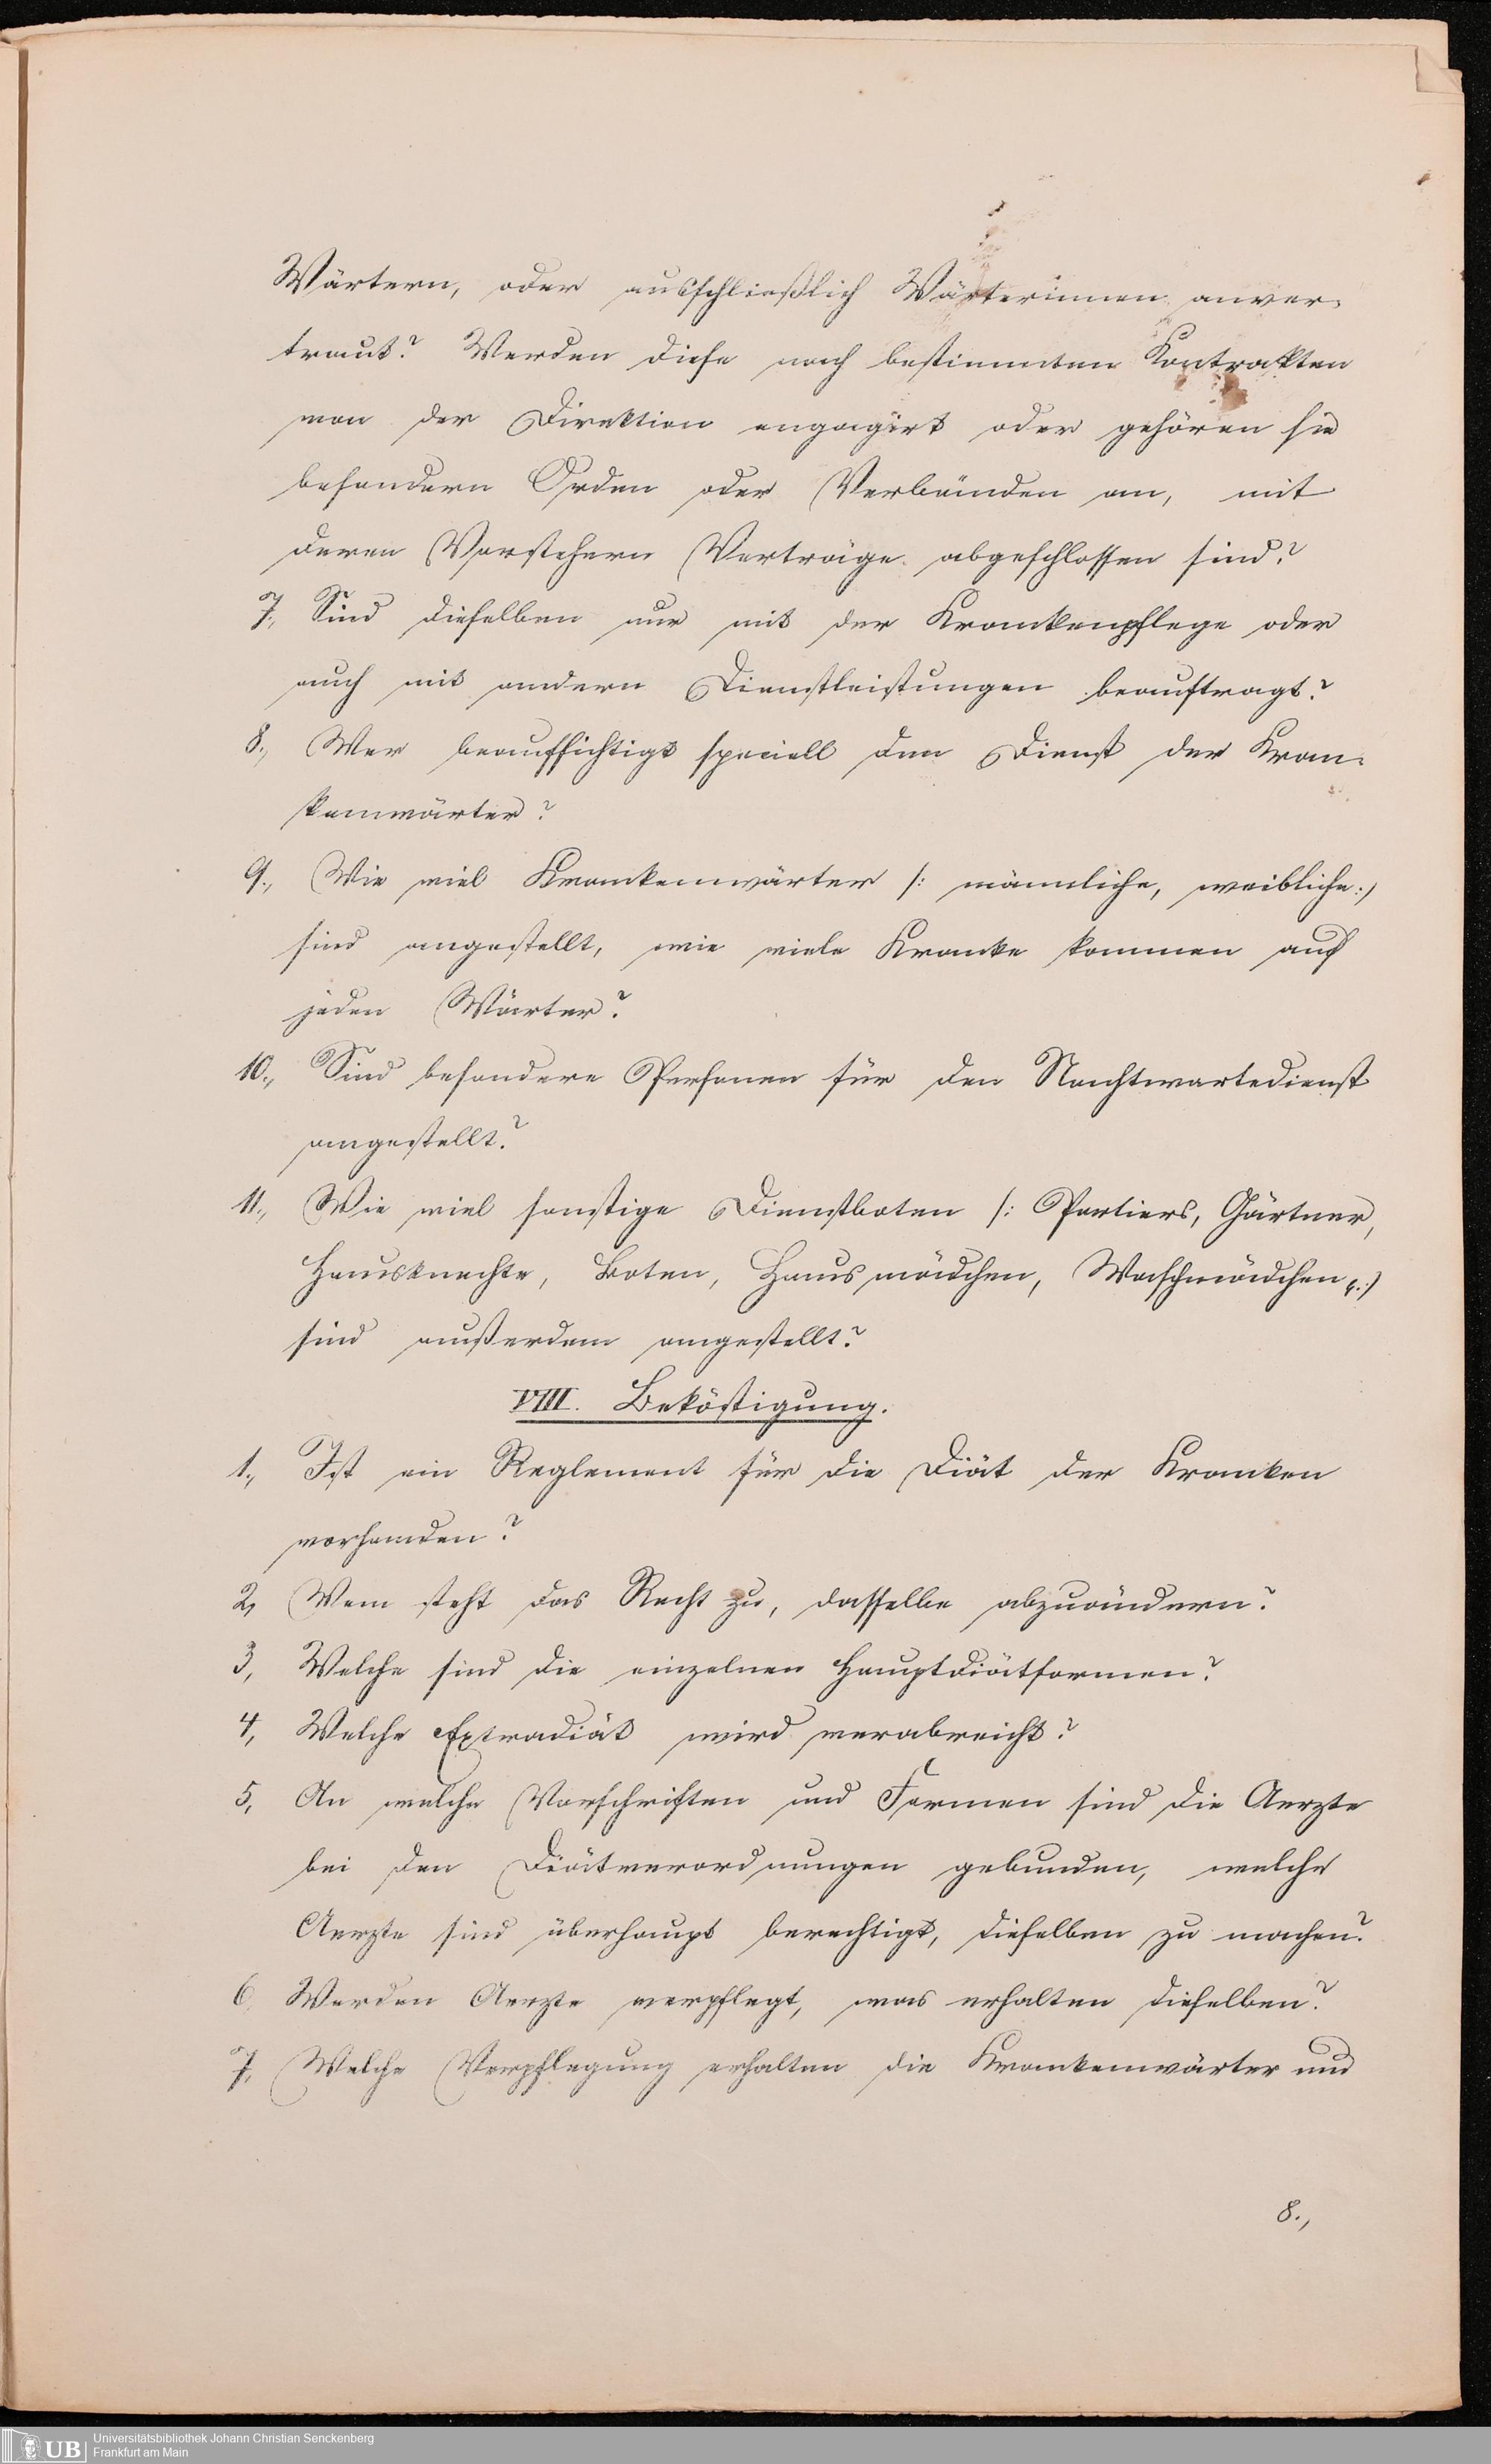 Wärtern, oder ausschließlich Wärterinnen anver-
traut? Werden diese nach bestimmten Kontrakten
von der Direktion engagirt oder gehören sie
besondern Orden oder Verbänden an, mit
deren Vorstehern Verträge abgeschlossen sind?
7., Sind dieselben nur mit der Krankenpflege oder
auch mit andern Dienstleistungen beauftragt?
8., Wer beaufsichtigt speciell den Dienst der Kran-
kenwärter?
9., Wie viel Krankenwärter /: männliche, weibliche :/
sind angestellt, wie viele Kranke kommen auf
jeden Wärter?
10., Sind besondere Personen für den Nachtwartedienst
angestellt?
11., Wie viel sonstige Dienstboten /: Portiers, Gärtner,
Hausknechte, Boten, Hausmädchen, Waschmädchen :/
sind außerdem angestellt?
VIII. Beköstigung.
1., Ist ein Reglement für die Diät der Kranken
vorhanden?
2, Wem steht das Recht zu, dasselbe abzuändern?
3, Welche sind die einzelnen Hauptdiätformen?
4, Welche Extradiät wird verabreicht?
5, An welche Vorschriften und Formen sind die Aerzte
bei den Diätverordnungen gebunden, welche
Aerzte sind überhaupt berechtigt, dieselben zu machen?
6, Werden Aerzte verpflegt, was erhalten dieselben?
7, Welche Verpflegung erhalten die Krankenwärter und
8.,
UB Universitätsbibliothek Johann Christian Senckenberg
Frankfurt am Main